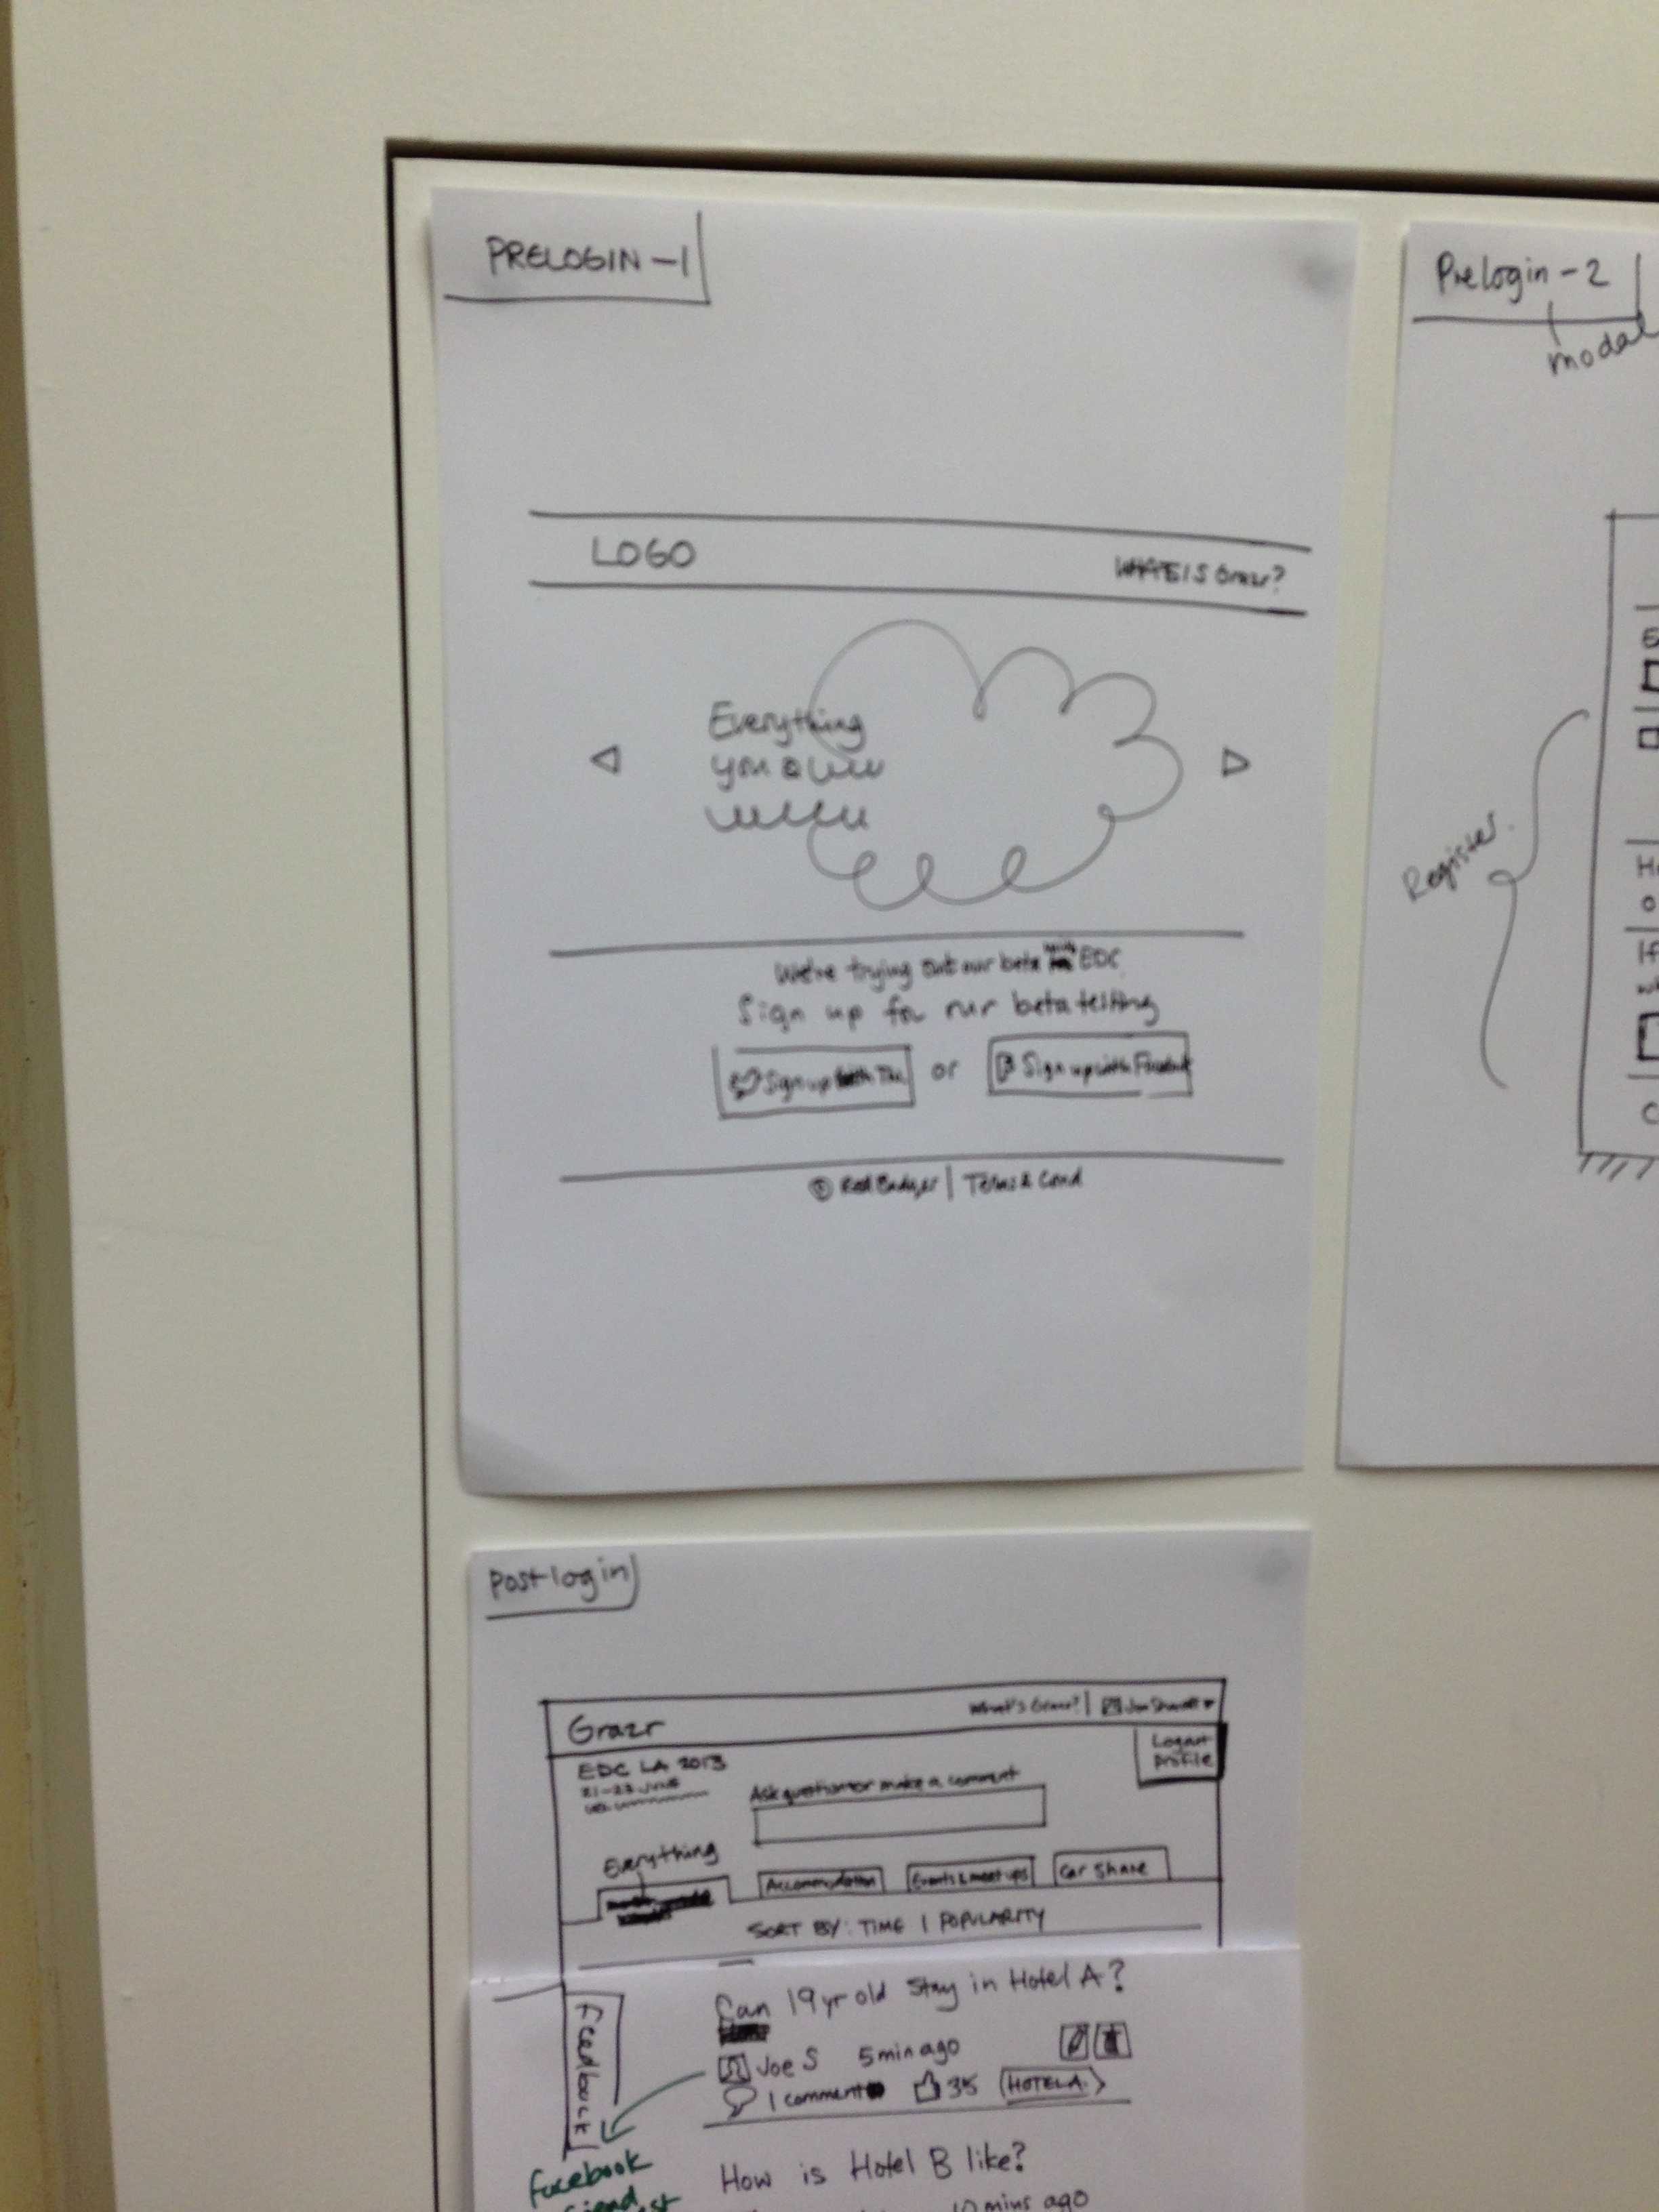 PRELOGIN-1
LOGO
WHAT IS Grazr?
Everything
you
We're trying out our beta with EDC
Sign up for our beta testing
Sign up with Tw
or
Sign up with Facebook
© Red Badger | Terms & Cond
Prelogin-2
modal
Register.
Postlogin
Grazr
What's Grazr?
Logout
Profile
EDC LA 2013
21-23 June
Ask question or make a comment
Everything
Accommodation
Events & meet ups
Car Share
SORT BY: TIME | POPULARITY
Feedback
Can 19yr old stay in Hotel A?
Joe S 5min ago
1 comment 35 HOTEL A
facebook
How is Hotel B like?
10 mins ago